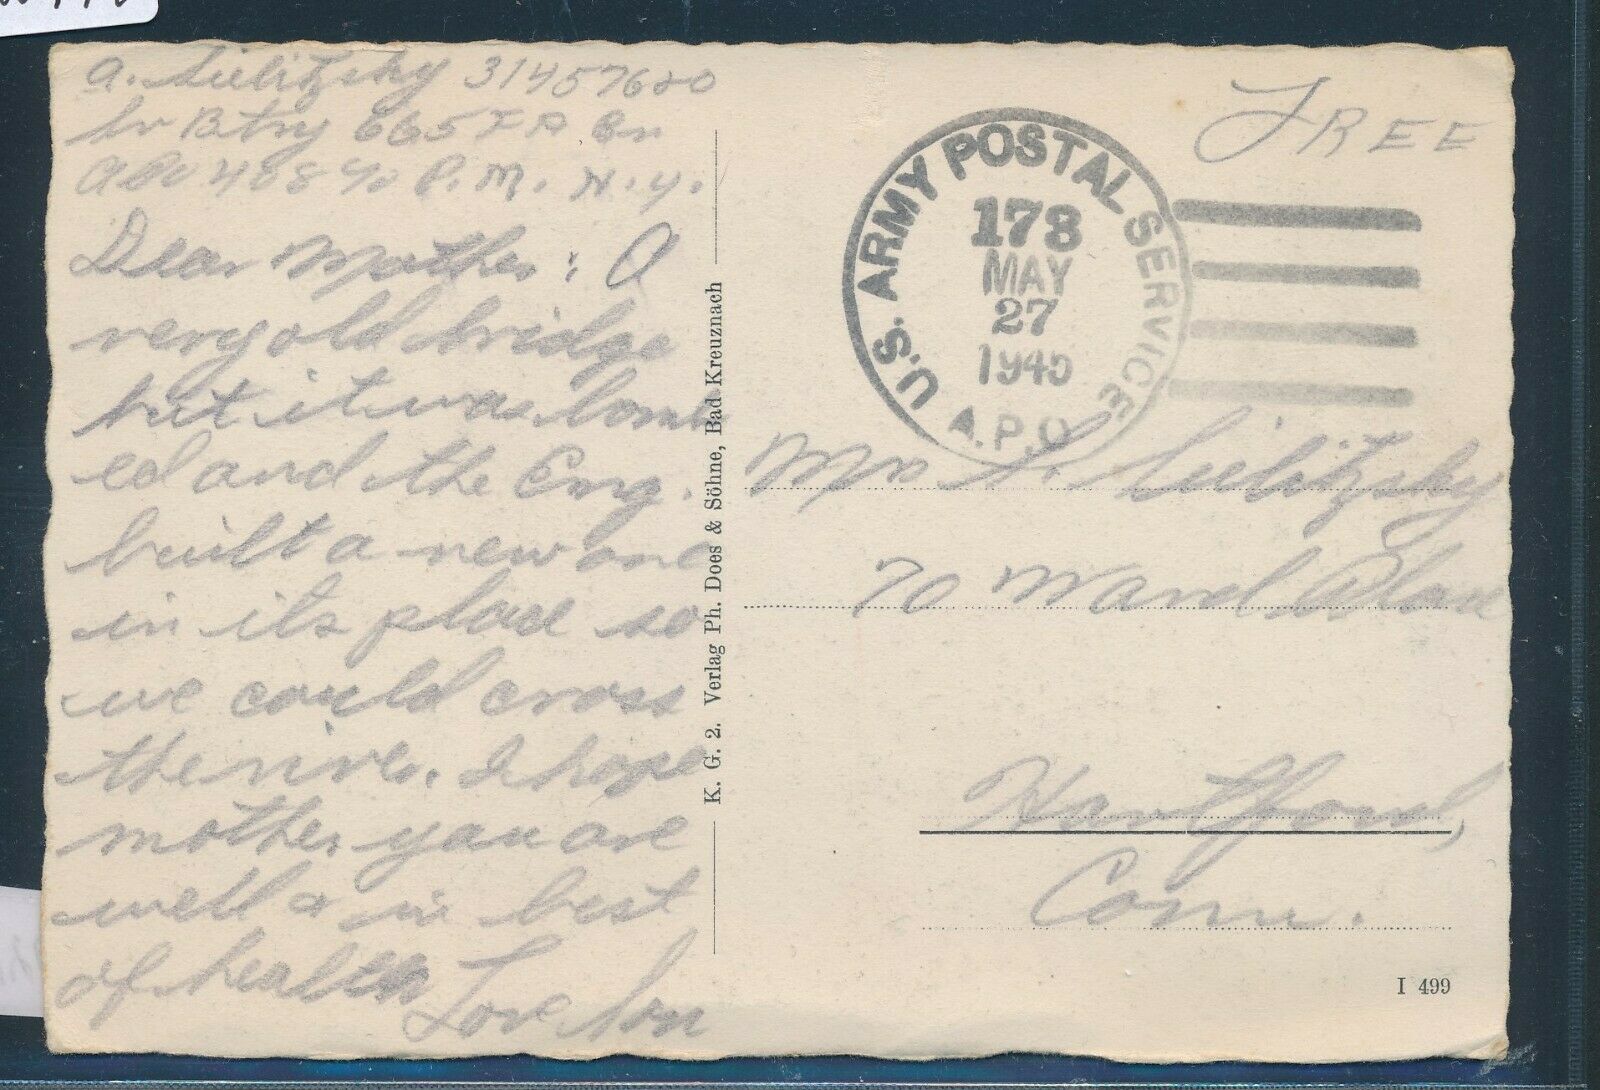 A. Sielitzsky 31457620
Sv Btry 665 F A Bn
APO 408 % P.M. N.Y.
Dear Mother: A
very old bridge
but it was bomb
ed and the Eng.
built a new one
in its place so
we could cross
the river. I hope
mother you are
well & in best
of health
Love Son
K. G. 2. Verlag Ph. Does & Söhne, Bad Kreuznach
FREE
U.S. ARMY POSTAL SERVICE
178
MAY
27
1945
A.P.O.
Mr S. Sielitzsky
70 Ward Place
Hartford,
Conn.
I 499